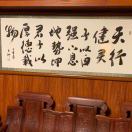 天行
健君
子以自
强不息
地势坤
君子以
厚德载
物